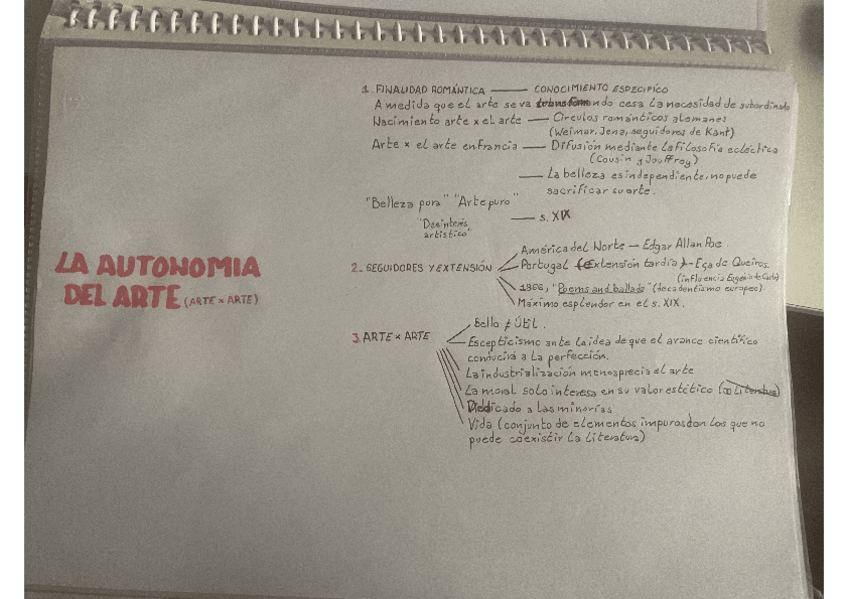 LA AUTONOMIA
DEL ARTE (ARTE x ARTE)
1. FINALIDAD ROMÁNTICA — CONOCIMIENTO ESPECIFÍCO
A medida que el arte se va ando cesa la necesidad de subordinado
Nacimiento arte x el arte — Círculos románticos alemanes
(Weimar, Jena, seguidores de Kant)
Arte x el arte en Francia — Difusión mediante la filosofía ecléctica
(Cousin y Jouffroy)
— La belleza es independiente, no puede
sacrificar su arte.
"Belleza pura" "Arte puro"
"Desinterés
artístico"
— s. XIX
2. SEGUIDORES Y EXTENSIÓN
América del Norte — Edgar Allan Poe
Portugal (Extensión tardía) - Eça de Queiros
(influencia Eugenio de)
1866, "Poems and ballads" (decadentismo europeo).
Máximo esplendor en el s. XIX.
3. ARTE x ARTE
Bello ≠ Útil.
Escepticismo ante la idea de que el avance científico
conducirá a la perfección.
La industrialización menosprecia el arte
La moral solo interesa en su valor estético
Dedicado a las minorías
Vida (conjunto de elementos impuros con los que no
puede coexistir la literatura)